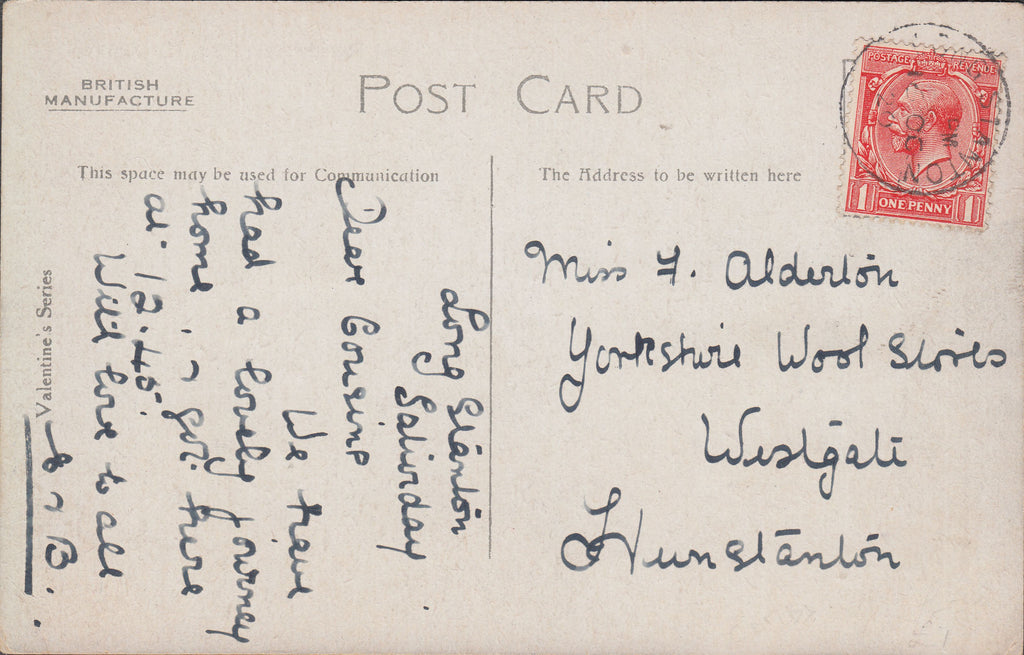 BRITISH
MANUFACTURE
POST CARD
This space may be used for Communication
The Address to be written here
Valentine's Series
Long Stanton
Saturday.
Dear Cousins
We have
had a lovely journey
home, & got here
at 12.45.
With love to all
& B.
Miss F. Alderton
Yorkshire Wool Stores
Westgate
Hunstanton
POSTAGE REVENUE
1 ONE PENNY 1
STANTON